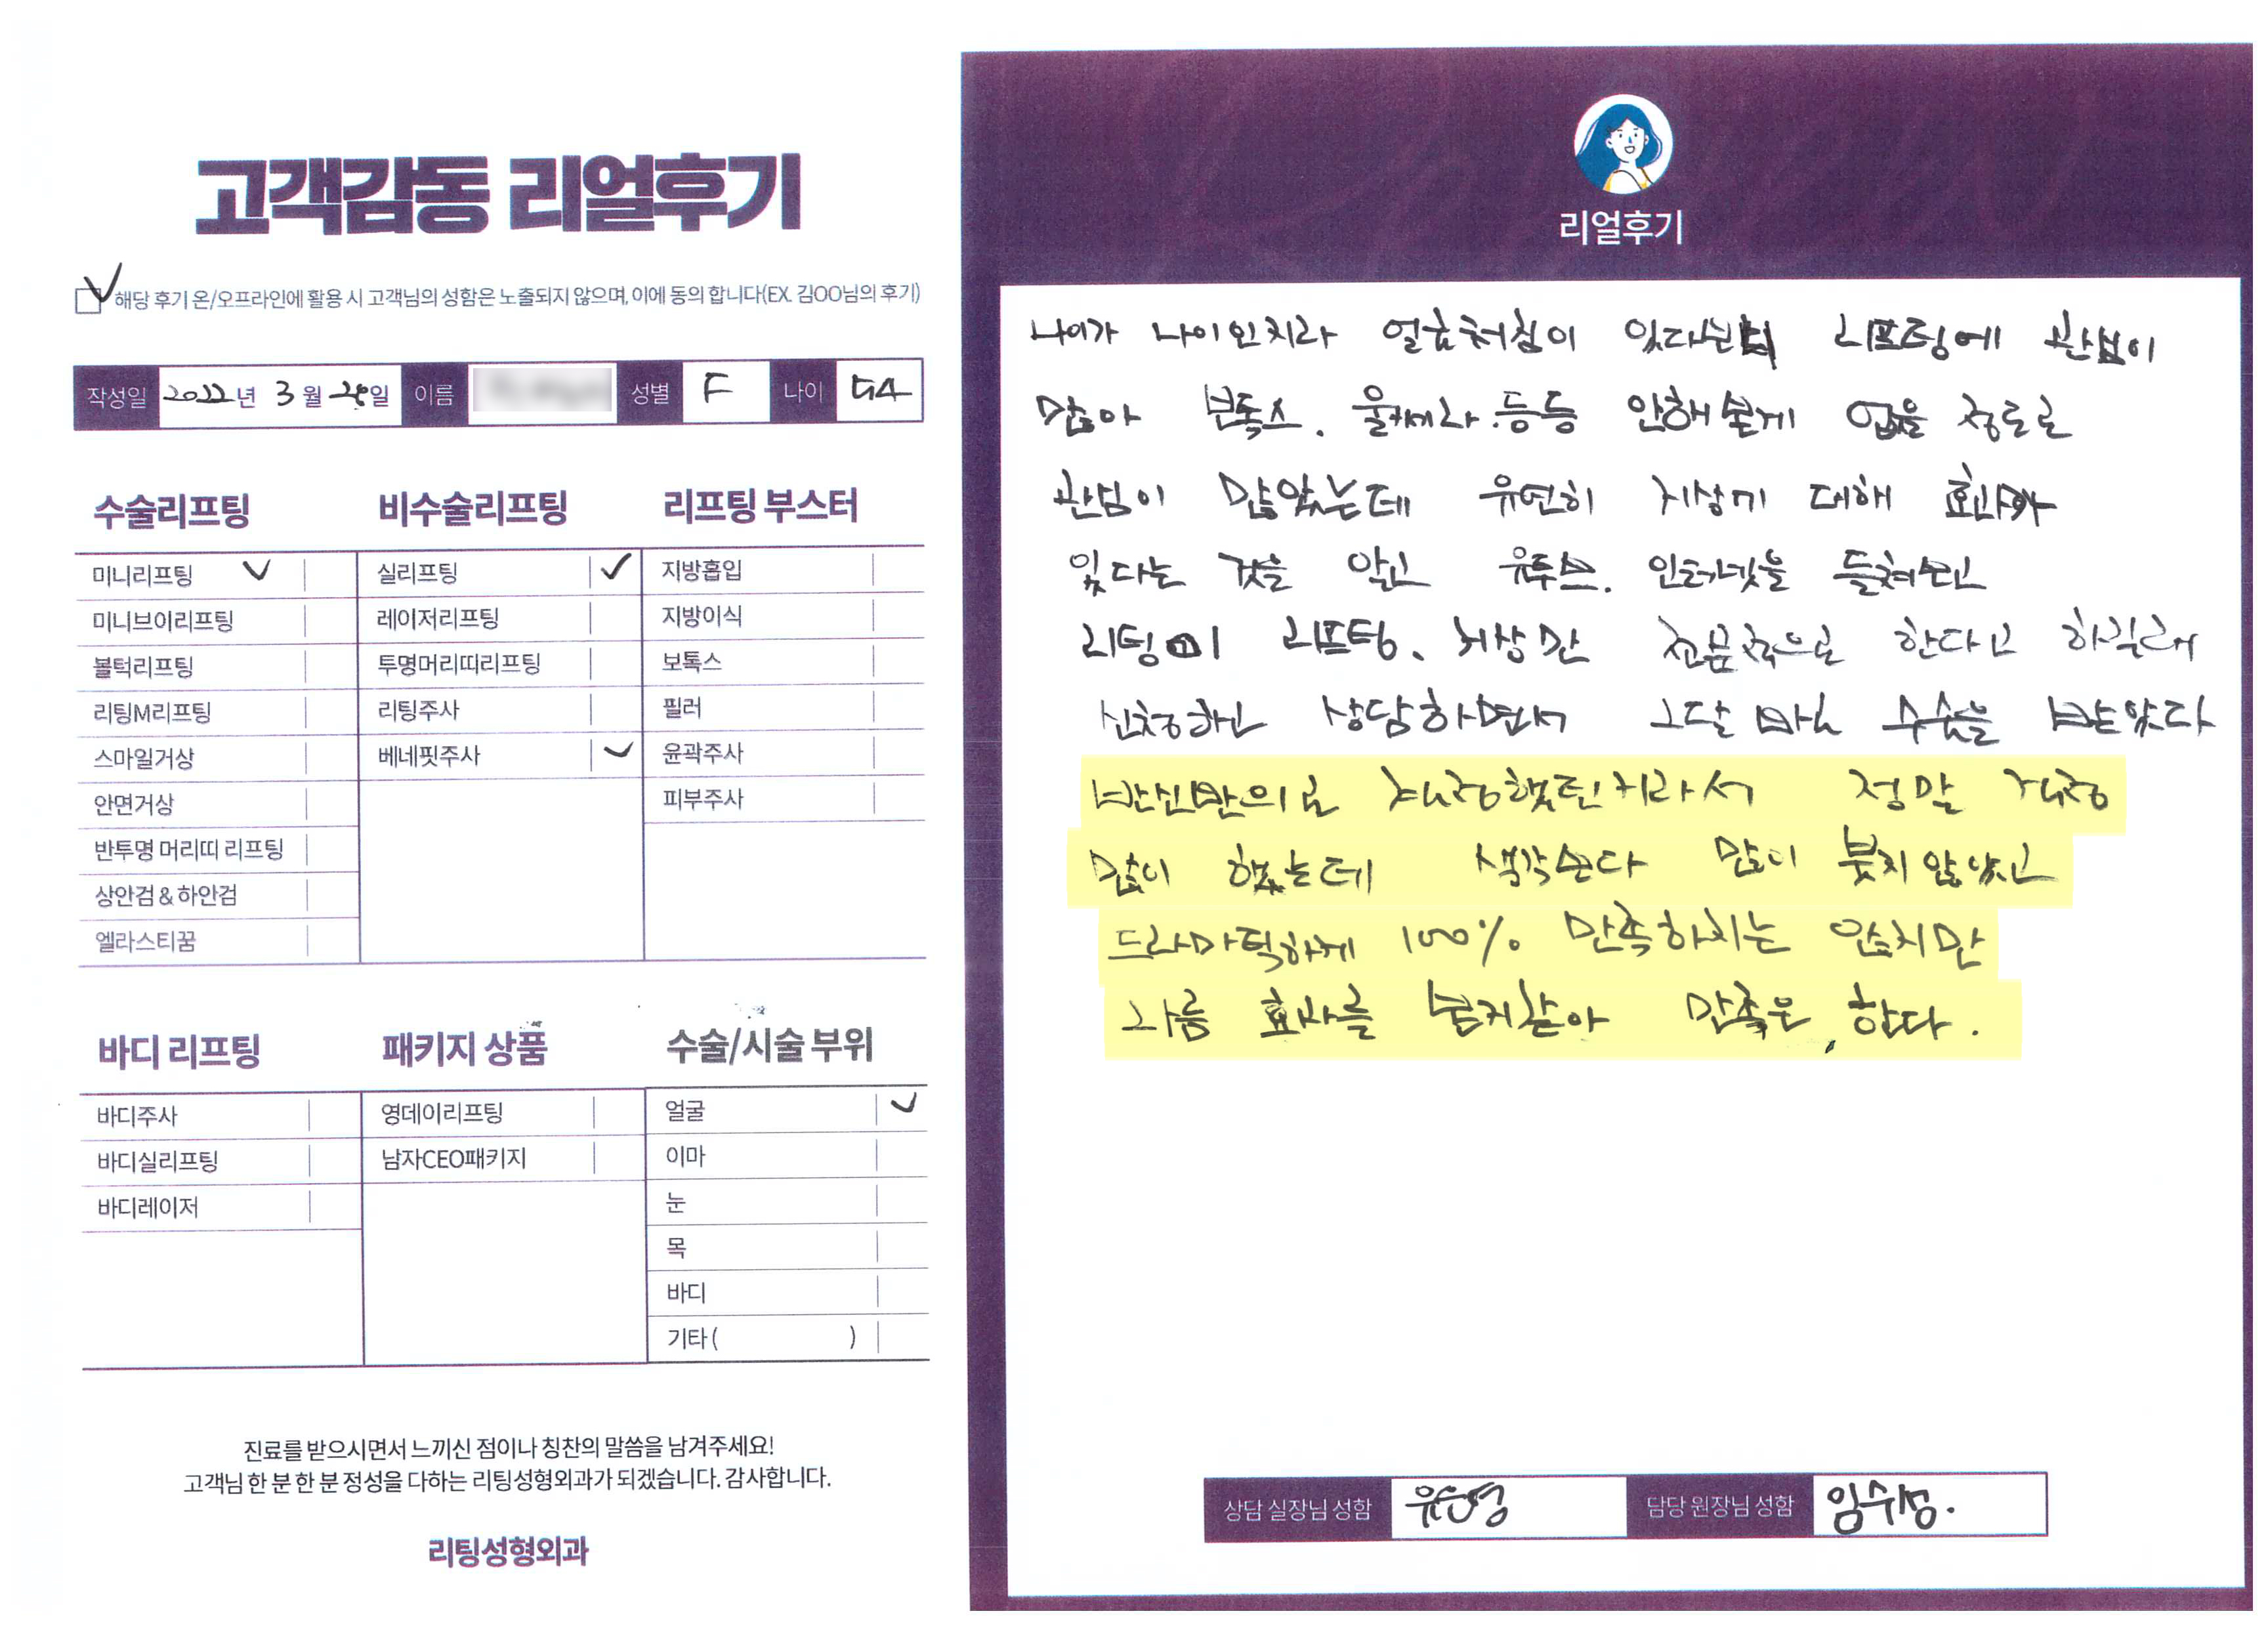 고객감동 리얼후기
해당 후기 온/오프라인에 활용 시 고객님의 성함은 노출되지 않으며, 이에 동의 합니다(EX. 김OO님의 후기)
작성일 2022년 3월 28일 이름 성별 F 나이 54
수술리프팅
미니리프팅
미니브이리프팅
볼턱리프팅
리팅M리프팅
스마일거상
안면거상
반투명 머리띠 리프팅
상안검&하안검
엘라스티꿈
비수술리프팅
실리프팅
레이저리프팅
투명머리띠리프팅
리팅주사
베네핏주사
리프팅 부스터
지방흡입
지방이식
보톡스
필러
윤곽주사
피부주사
바디 리프팅
바디주사
바디실리프팅
바디레이저
패키지 상품
영데이리프팅
남자CEO패키지
수술/시술 부위
얼굴
이마
눈
목
바디
기타( )
진료를 받으시면서 느끼신 점이나 칭찬의 말씀을 남겨주세요!
고객님 한 분 한 분 정성을 다하는 리팅성형외과가 되겠습니다. 감사합니다.
리팅성형외과
리얼후기
나이가 나이인지라 얼굴처짐이 있다보니 리프팅에 관심이
많아 보톡스. 울쎄라.등등 안해본게 없을 정도로
관심이 많았는데 우연히 거상기 대해 효과가
있다는 것을 알고 유투브. 인터넷을 들쳐보던
리팅이 리프팅. 거상만 전문적으로 한다고 하길래
신청하고 상담하면서 그달 바로 수술을 받았다
반신반의로 결정했던지라서 정말 걱정
많이 했는데 생각보다 많이 붓지 않았고
드라마틱하게 100% 만족하지는 않지만
나름 효과를 본거같아 만족은 한다.
상담 실장님 성함
담당 원장님 성함